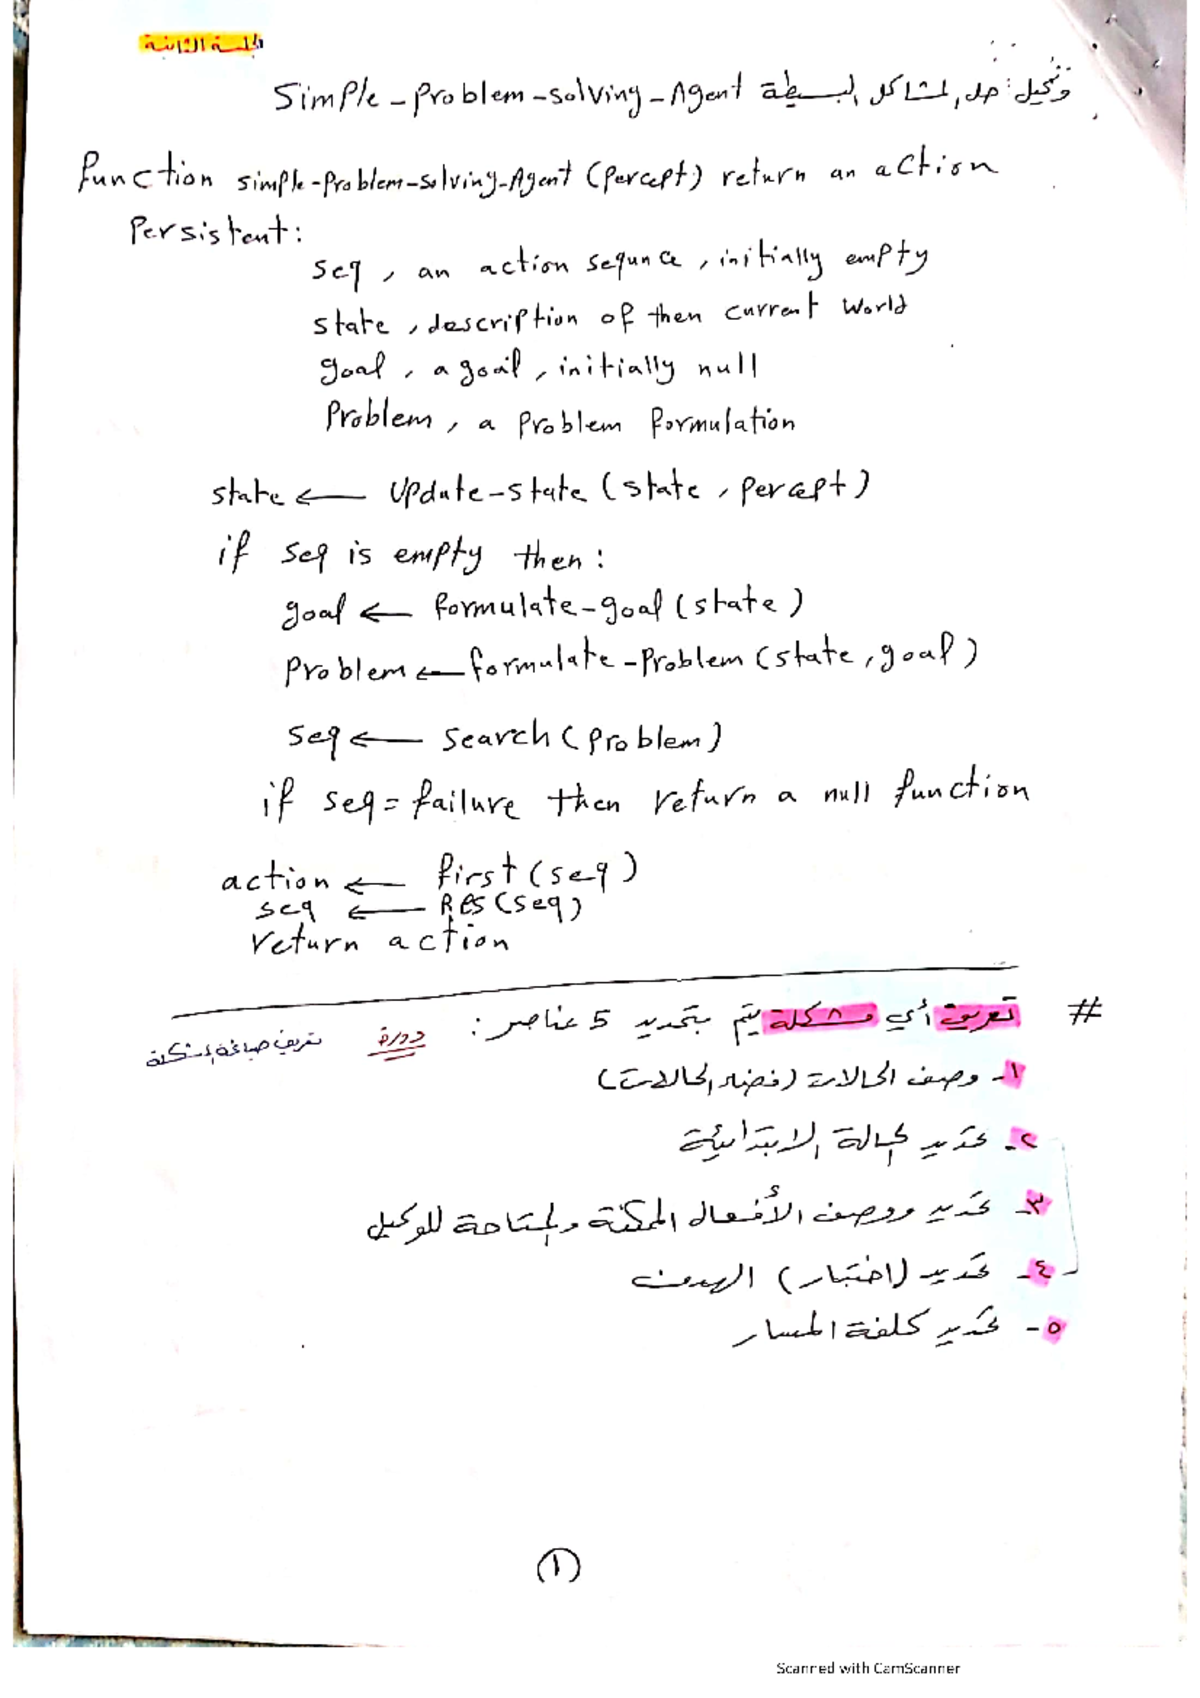 الجلسة الثانية
وكيل حل المشاكل البسيطة Simple-problem-solving-Agent
function simple-Problem-solving-Agent (percept) return an action
Persistent:
seq, an action sequnce, initially empty
state, description of then current world
goal, a goail, initially null
Problem, a problem formulation
state ← Update-state (state, percept)
if seq is empty then:
goal ← formulate-goal (state)
Problem ← formulate-Problem (state, goal)
seq ← search (problem)
if seq = failure then return a null function
action ← first (seq)
seq ← RES (seq)
return action
# تعريف أي مشكلة يتم بتحديد 5 عناصر:
دورة تعريف صياغة المشكلة
١- وصف الحالات (فضاء الحالات)
٢- تحديد الحالة الابتدائية
٣- تحديد ووصف الأفعال الممكنة والمتاحة للوكيل
٤- تحديد (اختبار) الهدف
٥- تحديد كلفة المسار
١
Scanned with CamScanner